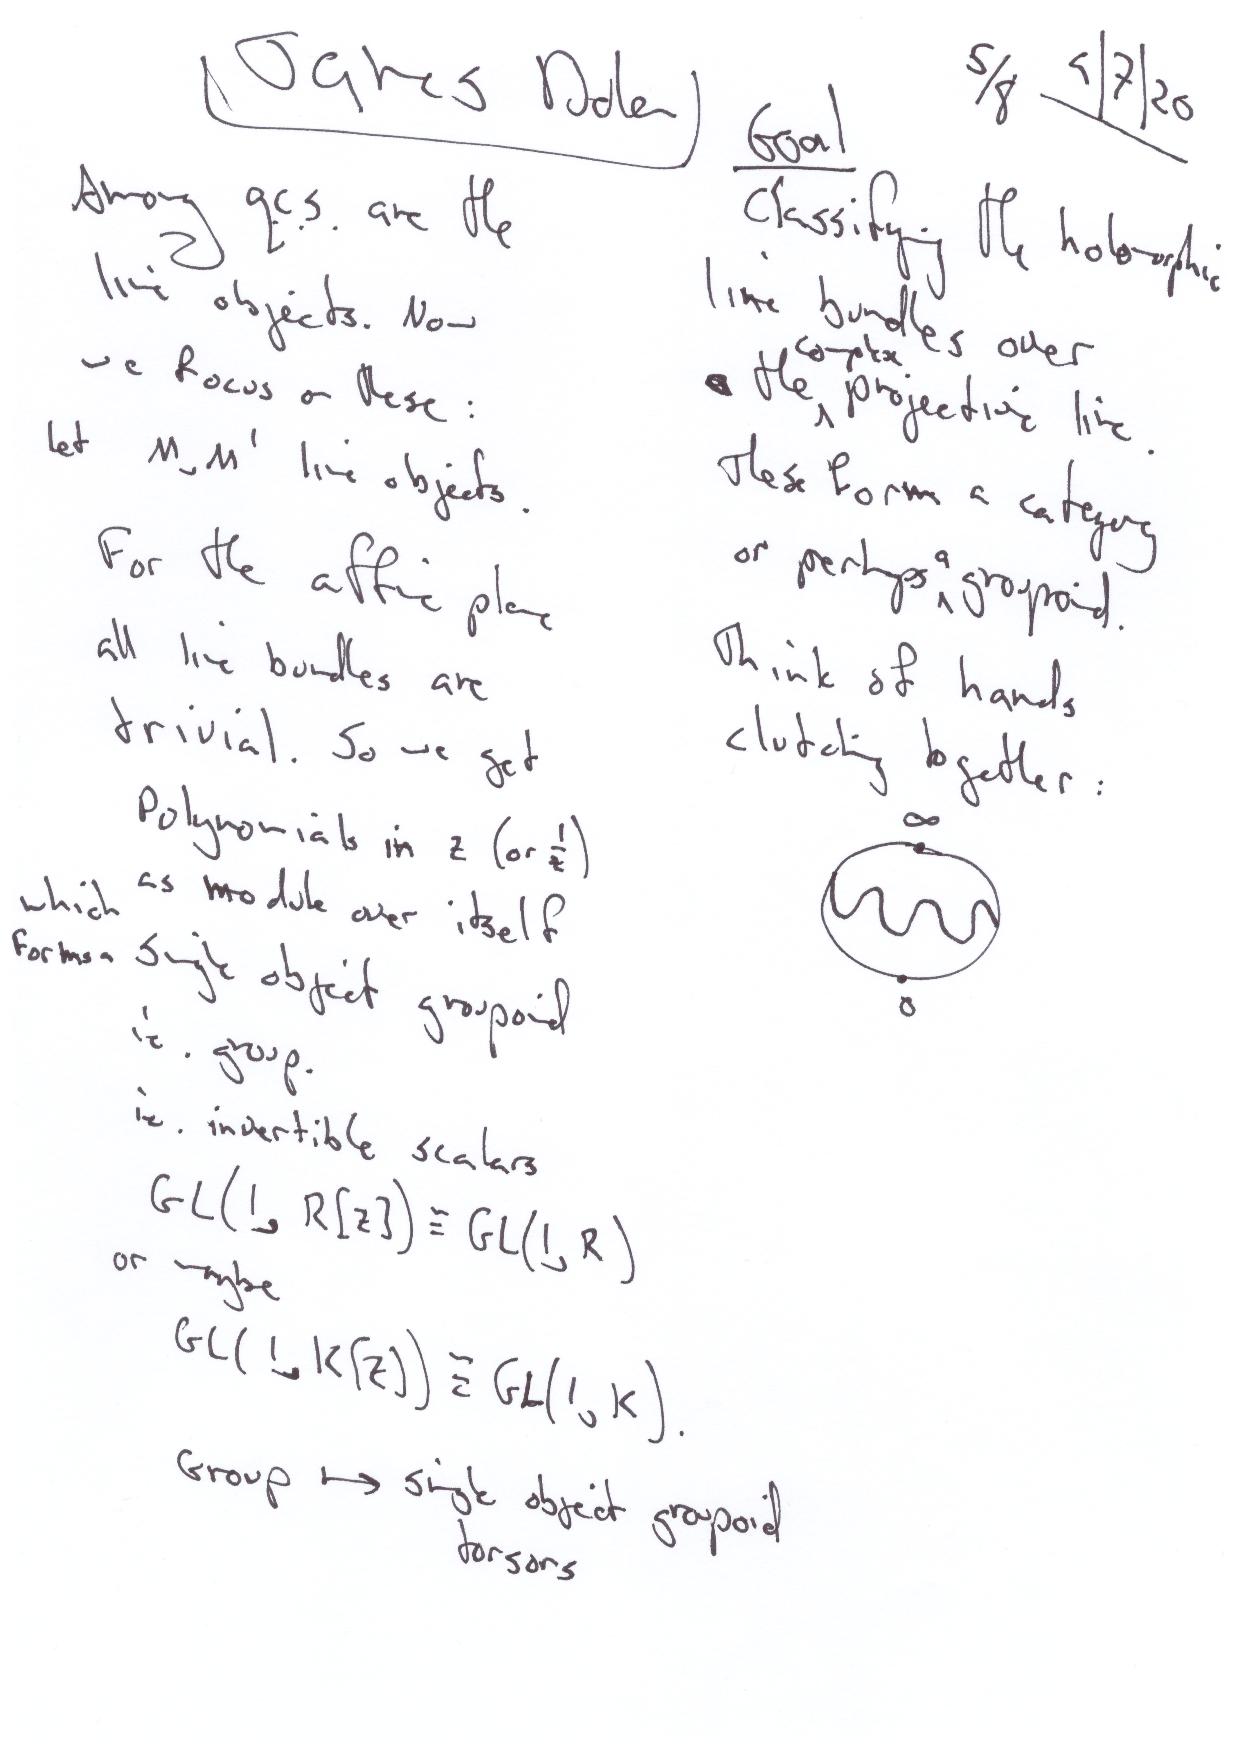 James Dolan
5/8 9/7/20
Among q.c.s. are the
line objects. Now
we focus on these:
let M, M' line objects.
For the affine plane
all line bundles are
trivial. So we get
Polynomials in z (or 1/z)
as module over itself
which forms a single object groupoid
ie. group.
ie. invertible scalars
GL(1, R[z]) ≅ GL(1, R)
or maybe
GL(1, K[z]) ≅ GL(1, K).
Group ↦ single object groupoid
torsors
Goal
Classifying the holomorphic
line bundles over
the complex projective line.
These form a category
or perhaps a groupoid.
Think of hands
clutching together:
∞
0